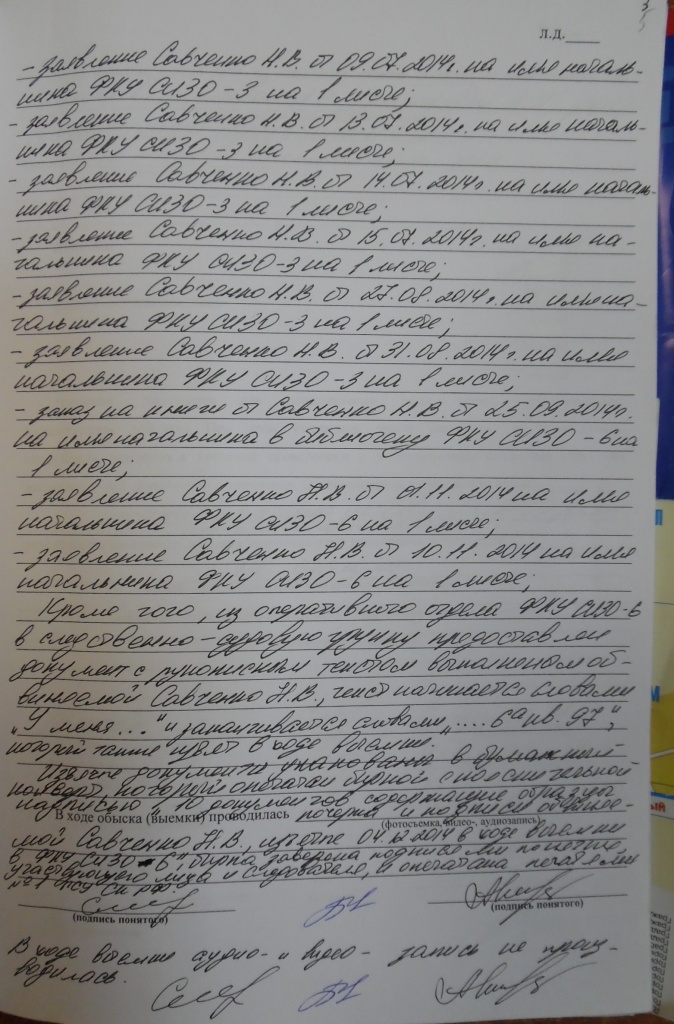 Л.Д.____
- заявление Савченко Н.В. от 09.07.2014г. на имя началь-
ника ФКУ СИЗО-3 на 1 листе;
- заявление Савченко Н.В. от 13.07.2014г. на имя началь-
ника ФКУ СИЗО-3 на 1 листе;
- заявление Савченко Н.В. от 14.07.2014г. на имя началь-
ника ФКУ СИЗО-3 на 1 листе;
- заявление Савченко Н.В. от 15.07.2014г. на имя на-
чальника ФКУ СИЗО-3 на 1 листе;
- заявление Савченко Н.В. от 27.08.2014г. на имя на-
чальника ФКУ СИЗО-3 на 1 листе;
- заявление Савченко Н.В. от 31.08.2014г. на имя
начальника ФКУ СИЗО-3 на 1 листе;
- заказ на книги от Савченко Н.В. от 25.09.2014г.
на имя начальника в библиотеку ФКУ СИЗО-6 на
1 листе;
- заявление Савченко Н.В. от 01.11.2014 на имя
начальника ФКУ СИЗО-6 на 1 листе;
- заявление Савченко Н.В. от 10.11.2014 на имя
начальника ФКУ СИЗО-6 на 1 листе;
Кроме того, из оперативного отдела ФКУ СИЗО-6
в следственно-судовую группу предоставлен
документ с рукописным текстом выполненом об-
виняемой Савченко Н.В., текст начинается словами
„У меня..." и заканчивается словами „.... 6а кв. 97",
который также изъят в ходе выемки.
Изъятые документы упакованы в бумажный
конверт, который опечатан биркой с пояснительной
надписью „10 документов содержащие образцы
В ходе обыска (выемки) проводилась почерка и подписи обвиняе-
(фотосъемка, видео-, аудиозапись)
мой Савченко Н.В., изъятые 04.12.2014 в ходе выемки
в ФКУ СИЗО-6", бирка заверена подписями понятых,
участвующего лица и следователя, и опечатана печатями
№1 ГСУ СК РФ.
(подпись понятого) (подпись понятого)
В ходе выемки аудио- и видео- запись не произ-
водилась.